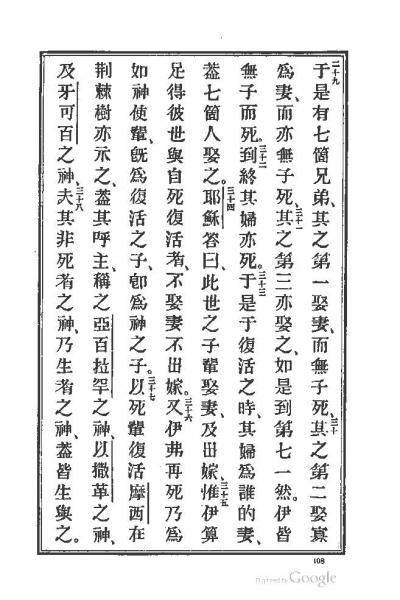 二十九于是有七箇兄弟、其之第一娶妻、而無子死、三十其之第二娶寡
為妻、而亦無子死、三十一其之第三亦娶之、如是到第七一然。伊皆
無子而死。三十二到終其婦亦死。三十三于是于復活之時、其婦為誰的妻、
葢七箇人娶之。三十四耶穌答曰、此世之子輩娶妻、及出嫁、三十五惟伊算
足得彼世與自死復活者、不娶妻不出嫁。三十六又伊弗再死乃為
如神使輩、旣為復活之子、卽為神之子。三十七以死輩復活摩西在
荆棘樹亦示之、葢其呼主、稱之亞百拉罕之神、以撒革之神、
及牙可百之神、三十八夫其非死者之神、乃生者之神、葢皆生與之。
108
Digitized by Google